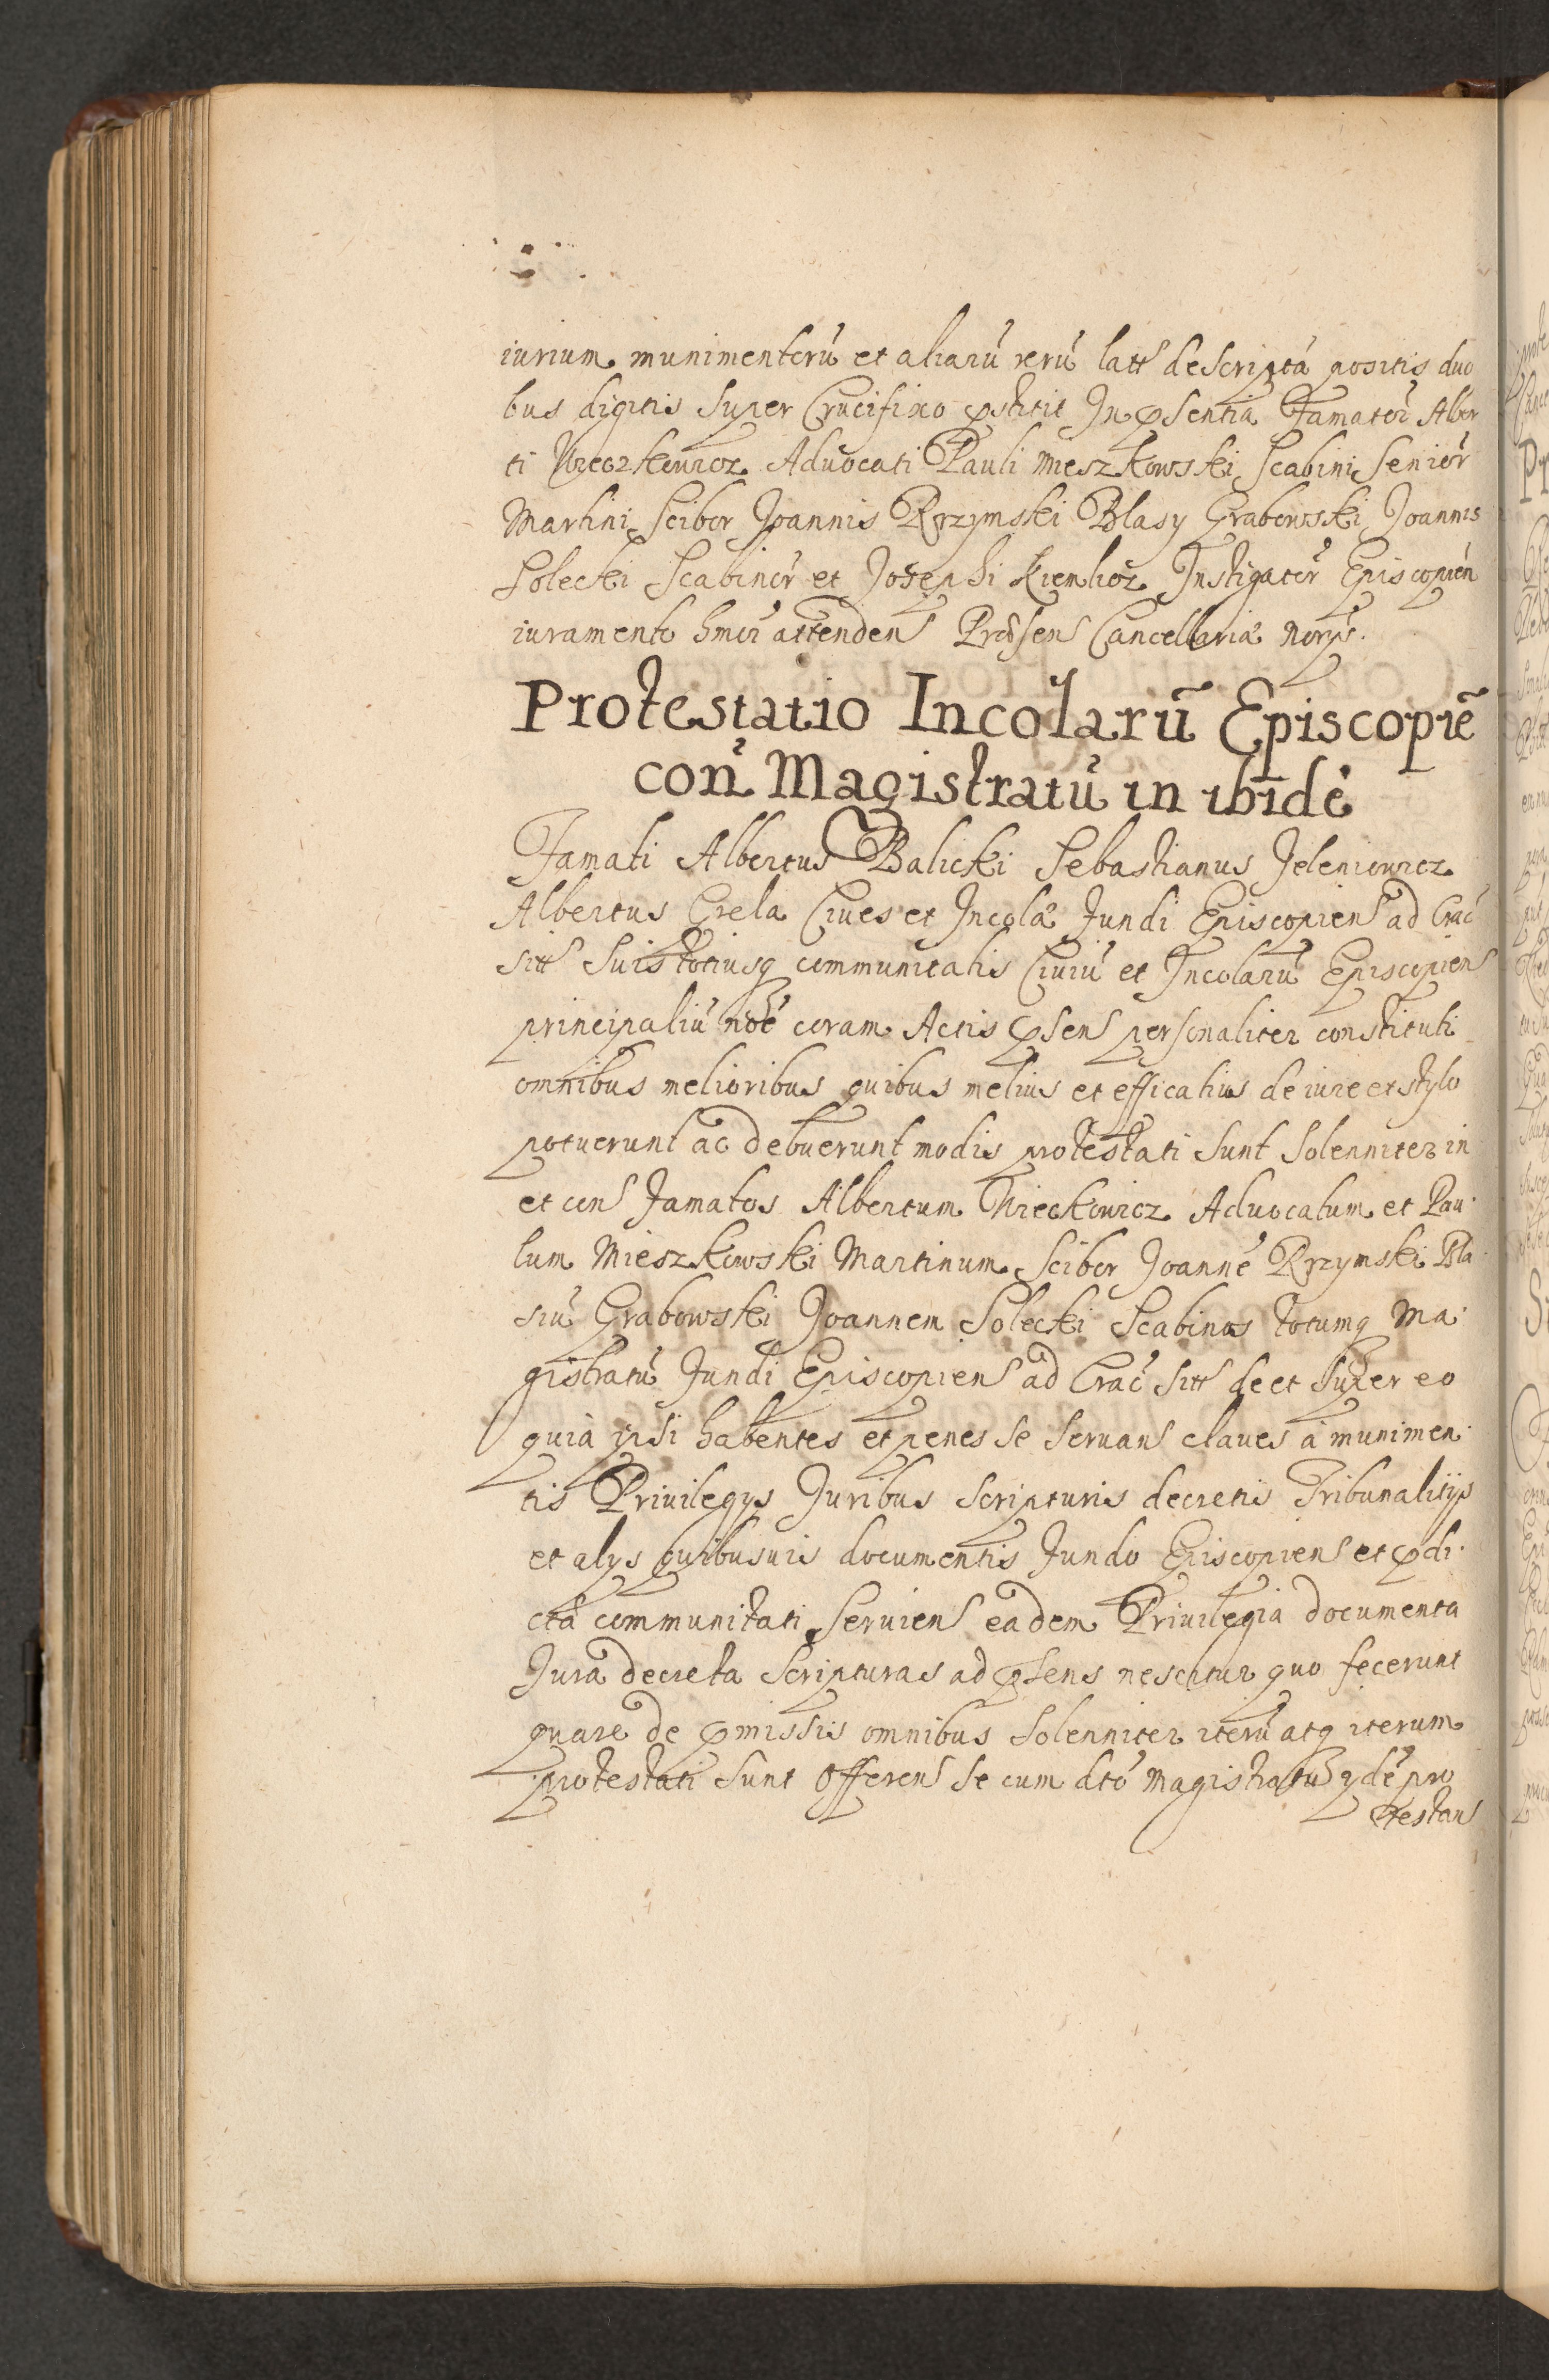 iurium munimentorũ et aliarũ rerũ latt descripta positis duo
bus digitis super Crucifixo pstitit In psentia Famator Alber
ti Wieczkowicz Advocati Pauli Mieszkowski Scabini Senior
Martini Scibor Joannis Rzymski Blasy Grabowski Joannis
Solecki Scabinor et Josephi Kienlicz Instigator Episcopien
iuramento hmoi attendens Præsens Cancellariæ Norps.
Protestatio Incolarũ Episcopiẽ
con Magistratũ in ibidẽ
Famati Albertus Balicki Sebastianus Jeleniowicz
Albertus Grela Cives et Incolæ Jundi Episcopiens ad Crac
sitt suis totiusq communitatis Civiũ et Incolarũ Episcopiens
principaliũ noẽ coram Actis psens personaliter constituti
omnibus melioribus quibus melius et efficatius de iure et stylo
potuerunt ac debuerunt modis protestati sunt solenniter in
et con Famatos Albertum Wieckowicz Advocatum et Pau
lum Mieszkowski Martinum Scibor Joannẽ Rzymski Bla
siũ Grabowski Joannem Solecki Scabinos totumq Ma
gistratũ Jundi Episcopiens ad Crac sitt de et super eo
quia ipsi habentes et penes se servans claves à munimen
tis Privilegys Juribus Scripturis decretis Tribunalitijs
et alys quibusvis documentis Jundo Episcopiens et pdi
cta communitati serviens eadem Privilegia documenta
Jura decreta Scripturas ad psens nescitur quo fecerunt
quare de pmissis omnibus solenniter iterũ atq iterum
protestati sunt offerens se cum dtõ Magistratu qdẽ pro
testans